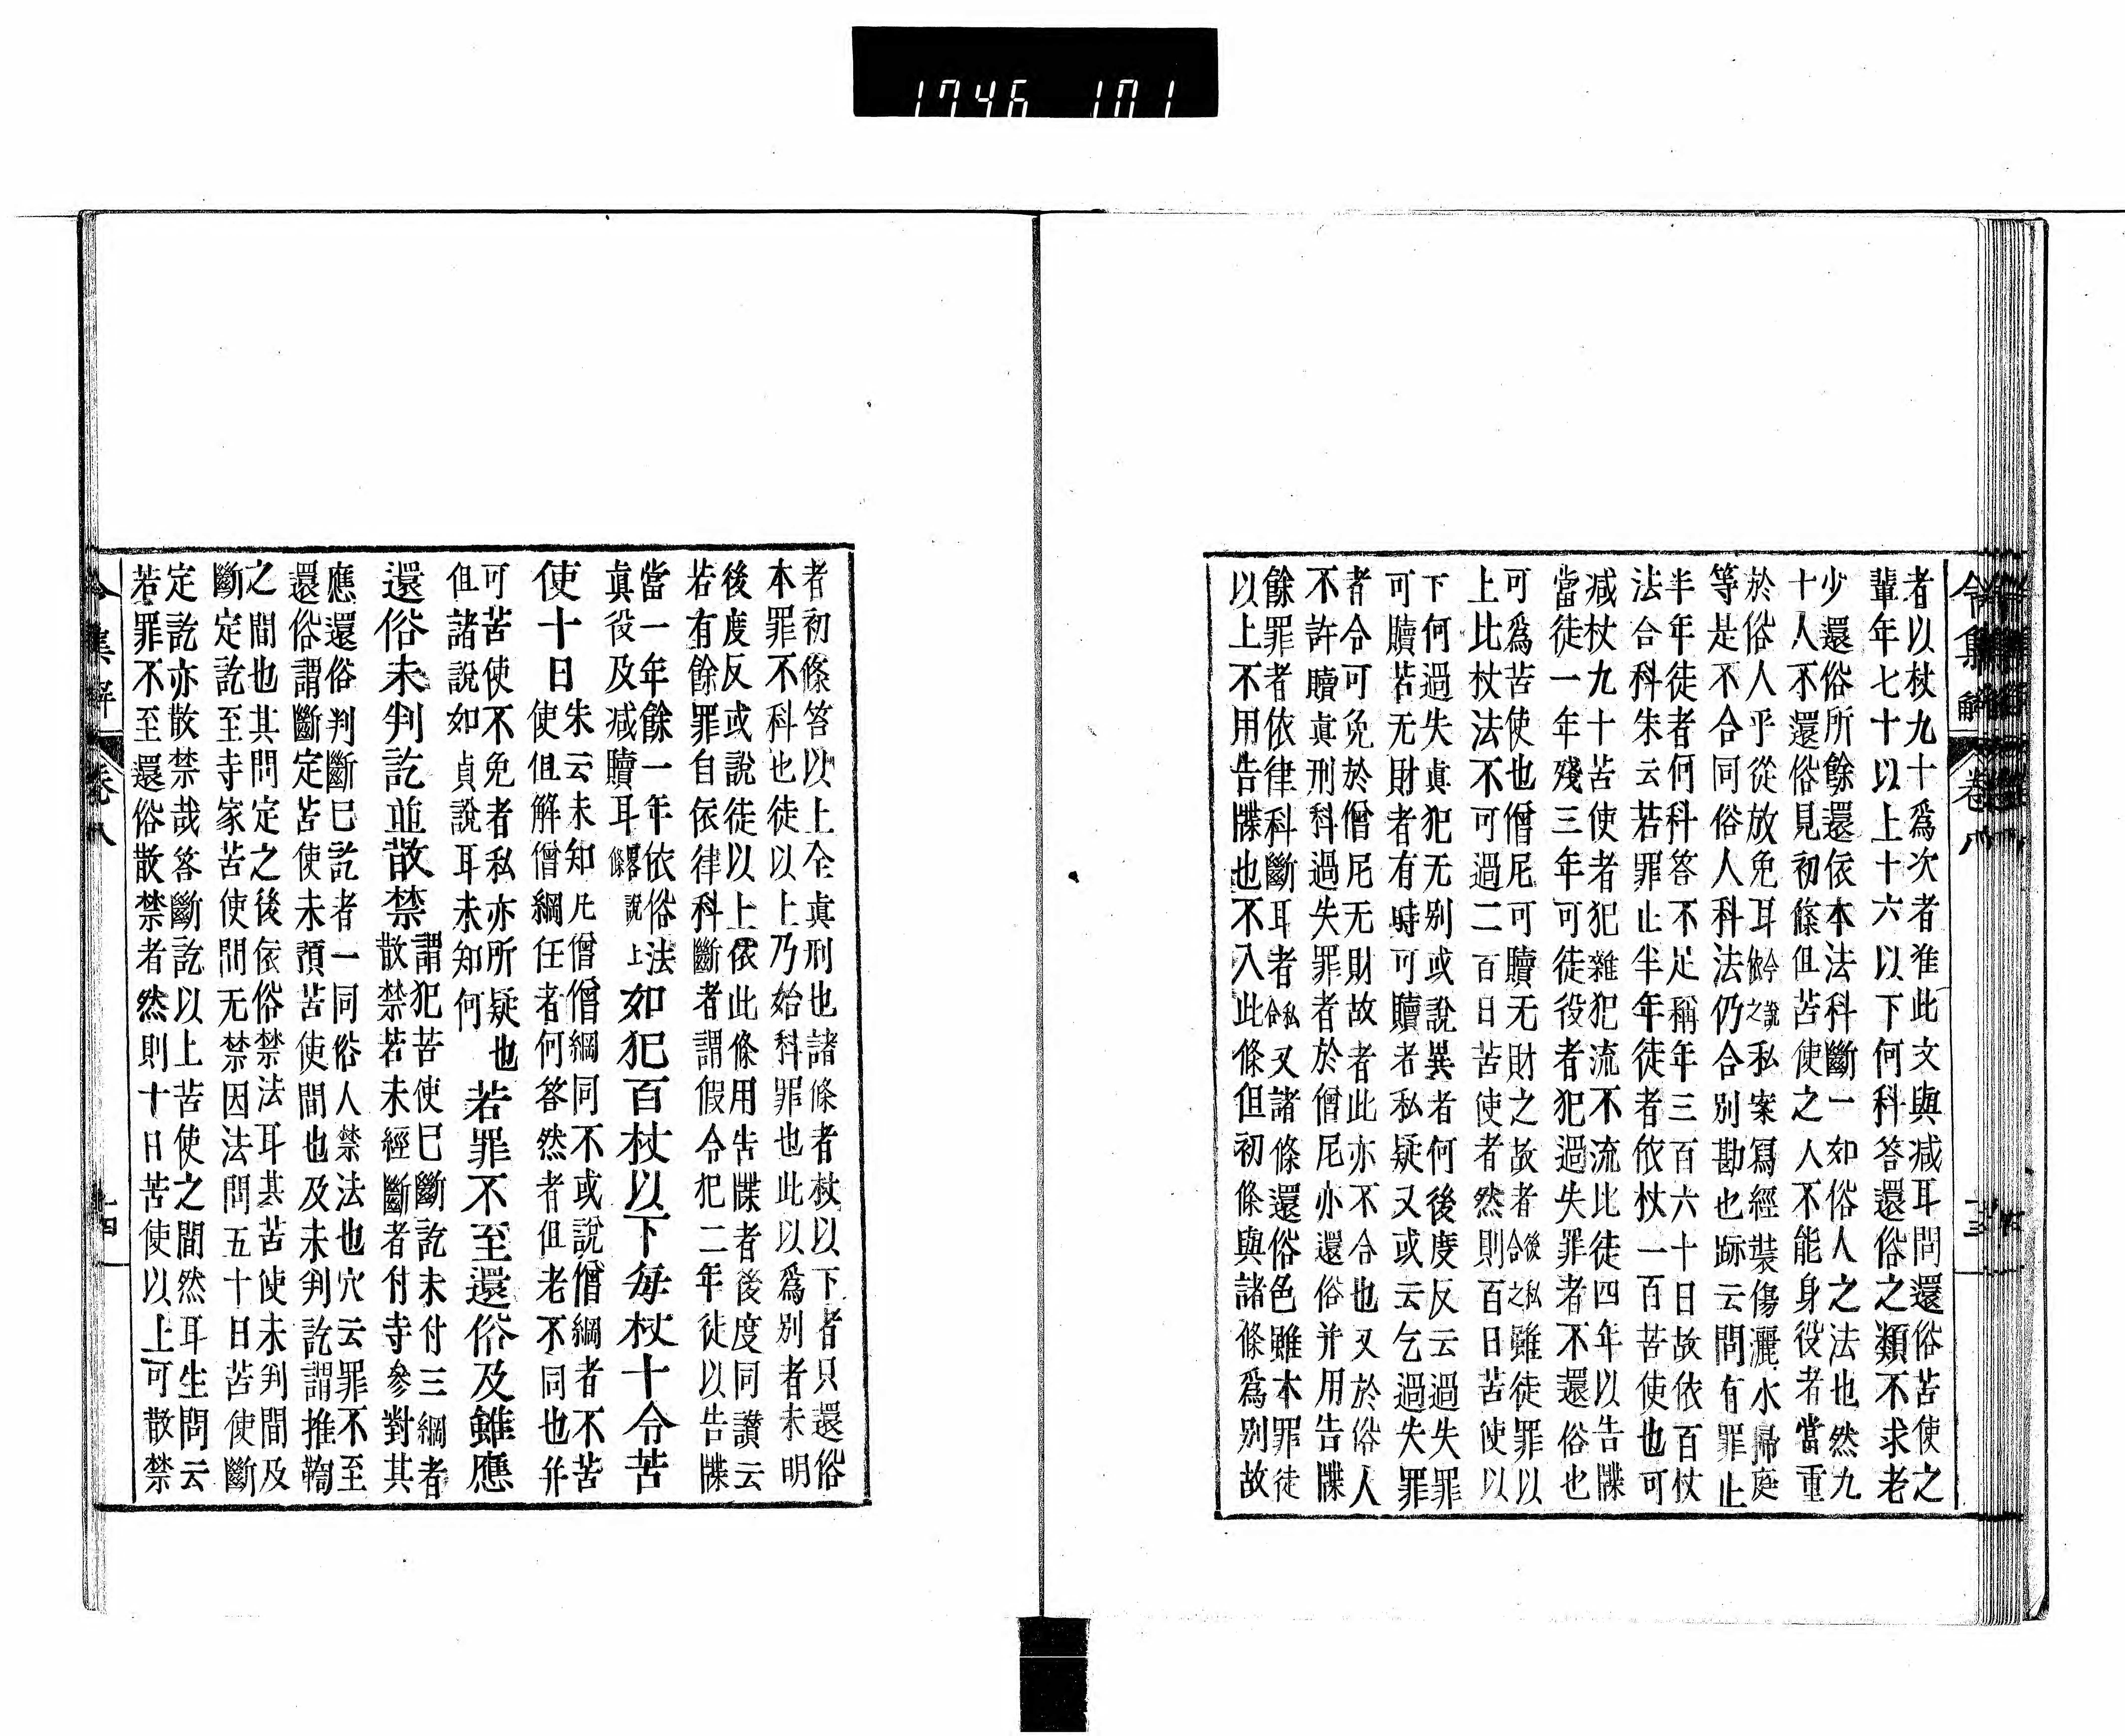 1746 101
令集解 卷八 十三
者以杖九十爲次者准此文與减耳問還俗苦使之
輩年七十以上十六以下何科答還俗之類不求老
少還俗所餘還依本法科斷一如俗人之法也然九
十人不還俗見初條但苦使之人不能身役者當重
於俗人乎從放免耳於今說之私案寫經裝傷灑水掃庭
等是不合同俗人科法仍合別勘也跡云問有罪止
半年徒者何科答不足稱年三百六十日故依百杖
法合科朱云若罪止半年徒者依杖一百苦使也可
减杖九十苦使者犯雜犯流不流比徒四年以告牒
當徒一年殘三年可徒役者犯過失罪者不還俗也
可爲苦使也僧尼可贖无財之故者後私合之雖徒罪以
上比杖法不可過二百日苦使者然則百日苦使以
下何過失眞犯无別或說異者何後度反云過失罪
可贖若无財者有時可贖者私疑又或云乞過失罪
者令可免於僧尼无財故者此亦不合也又於俗人
不許贖眞刑科過失罪者於僧尼亦還俗并用告牒
餘罪者依律科斷耳者私合又諸條還俗色雖本罪徒
以上不用告牒也不入此條但初條與諸條爲別故
者初條答以上全眞刑也諸條者杖以下者只還俗
本罪不科也徒以上乃始科罪也此以爲別者未明
後度反或說徒以上依此條用告牒者後度同讃云
若有餘罪自依律科斷者謂假令犯二年徒以告牒
當一年餘一年依俗法
眞役及减贖耳畧說上條
如犯百杖以下每杖十令苦
使十日
朱云未知凡僧僧綱同不或說僧綱者不苦
使但解僧綱任者何答然者但老不同也幷
可苦使不免者私亦所疑也
但諸說如貞說耳未知何
若罪不至還俗及雖應
還俗未判訖並散禁
謂犯苦使巳斷訖未付三綱者
散禁若未經斷者付寺參對其
應還俗判斷巳訖者一同俗人禁法也穴云罪不至
還俗謂斷定苦使未預苦使間也及未判訖謂推鞫
之間也其問定之後依俗禁法耳其苦使未判間及
斷定訖至寺家苦使間无禁因法問五十日苦使斷
定訖亦散禁哉答斷訖以上苦使之間然耳生問云
若罪不至還俗散禁者然則十日苦使以上可散禁
令集解 卷八 十四